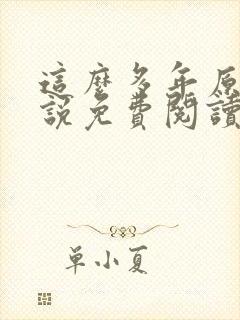 這麼多年原
說免費閱讀
單小夏